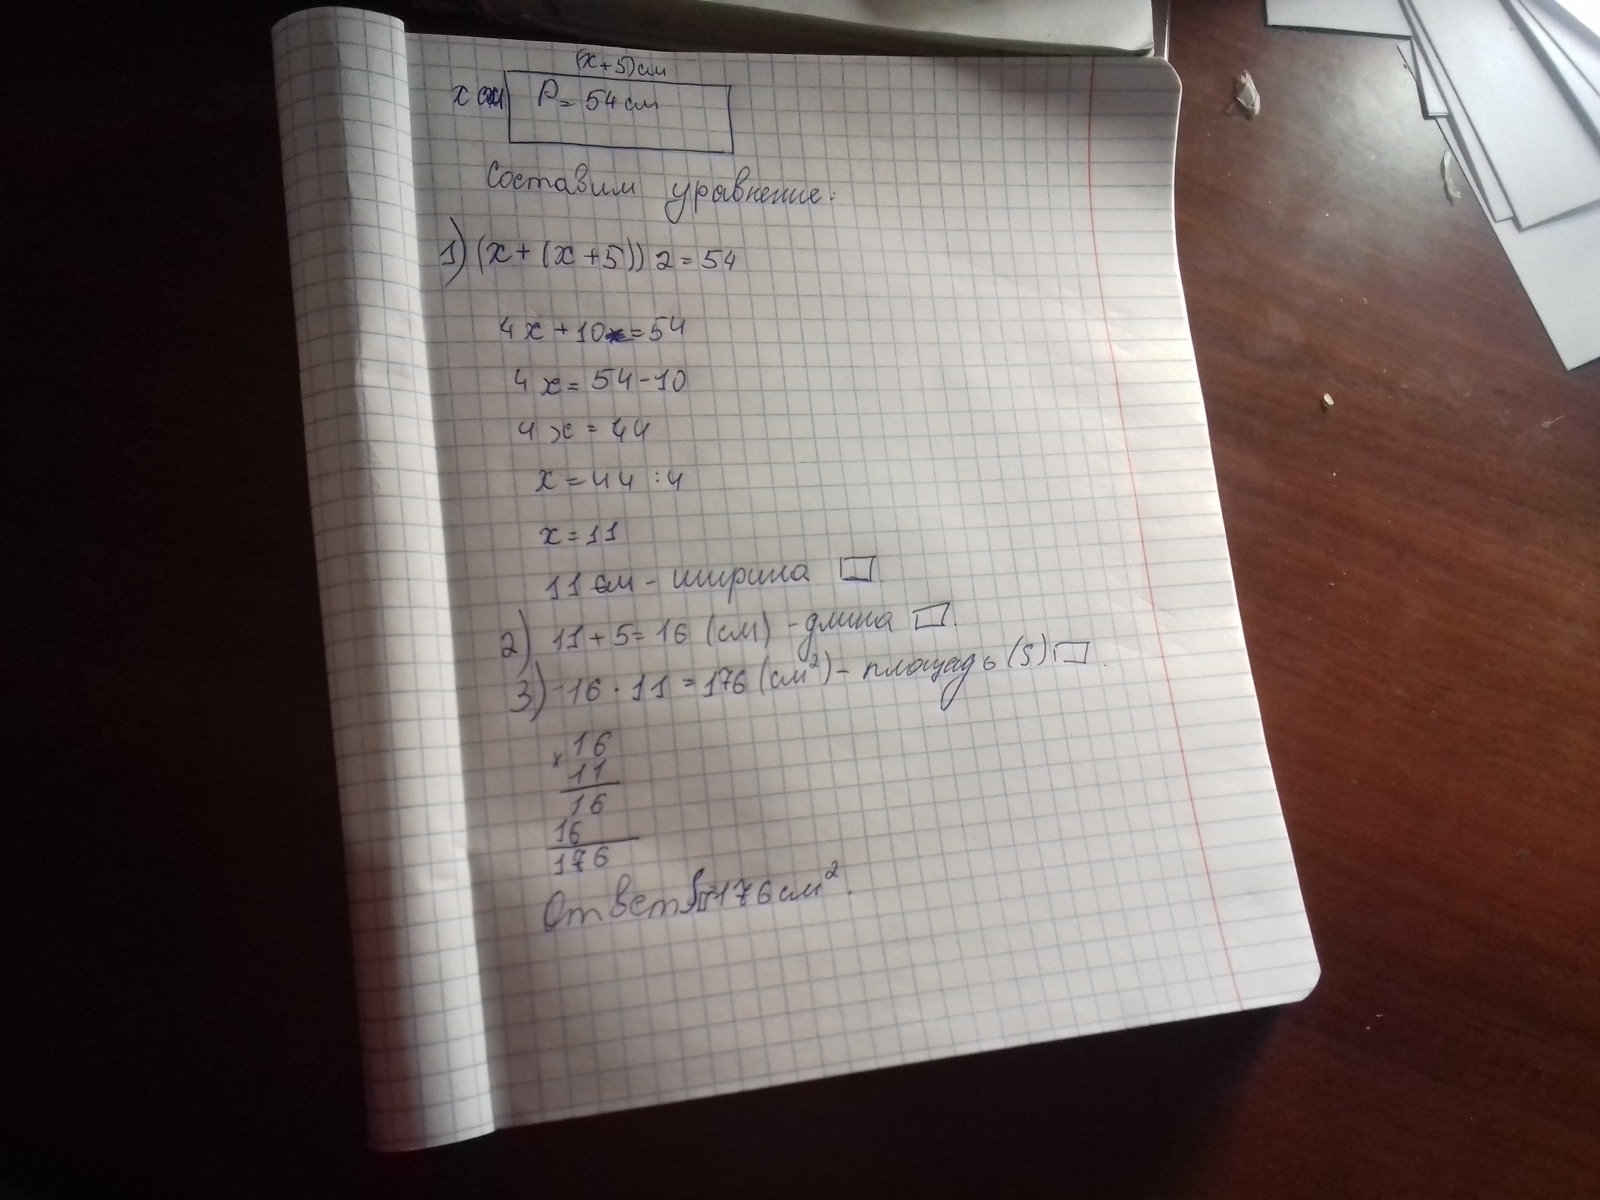 (x+5) см
x см
P= 54 см
Составим уравнение:
1) (x+(x+5)) 2=54
4x+10=54
4x=54-10
4x=44
x=44:4
x=11
11 см - ширина
2) 11+5=16 (см) - длина
3) 16·11=176 (см²) - площадь (S)
×16
11
16
16
176
Ответ: S=176 см².